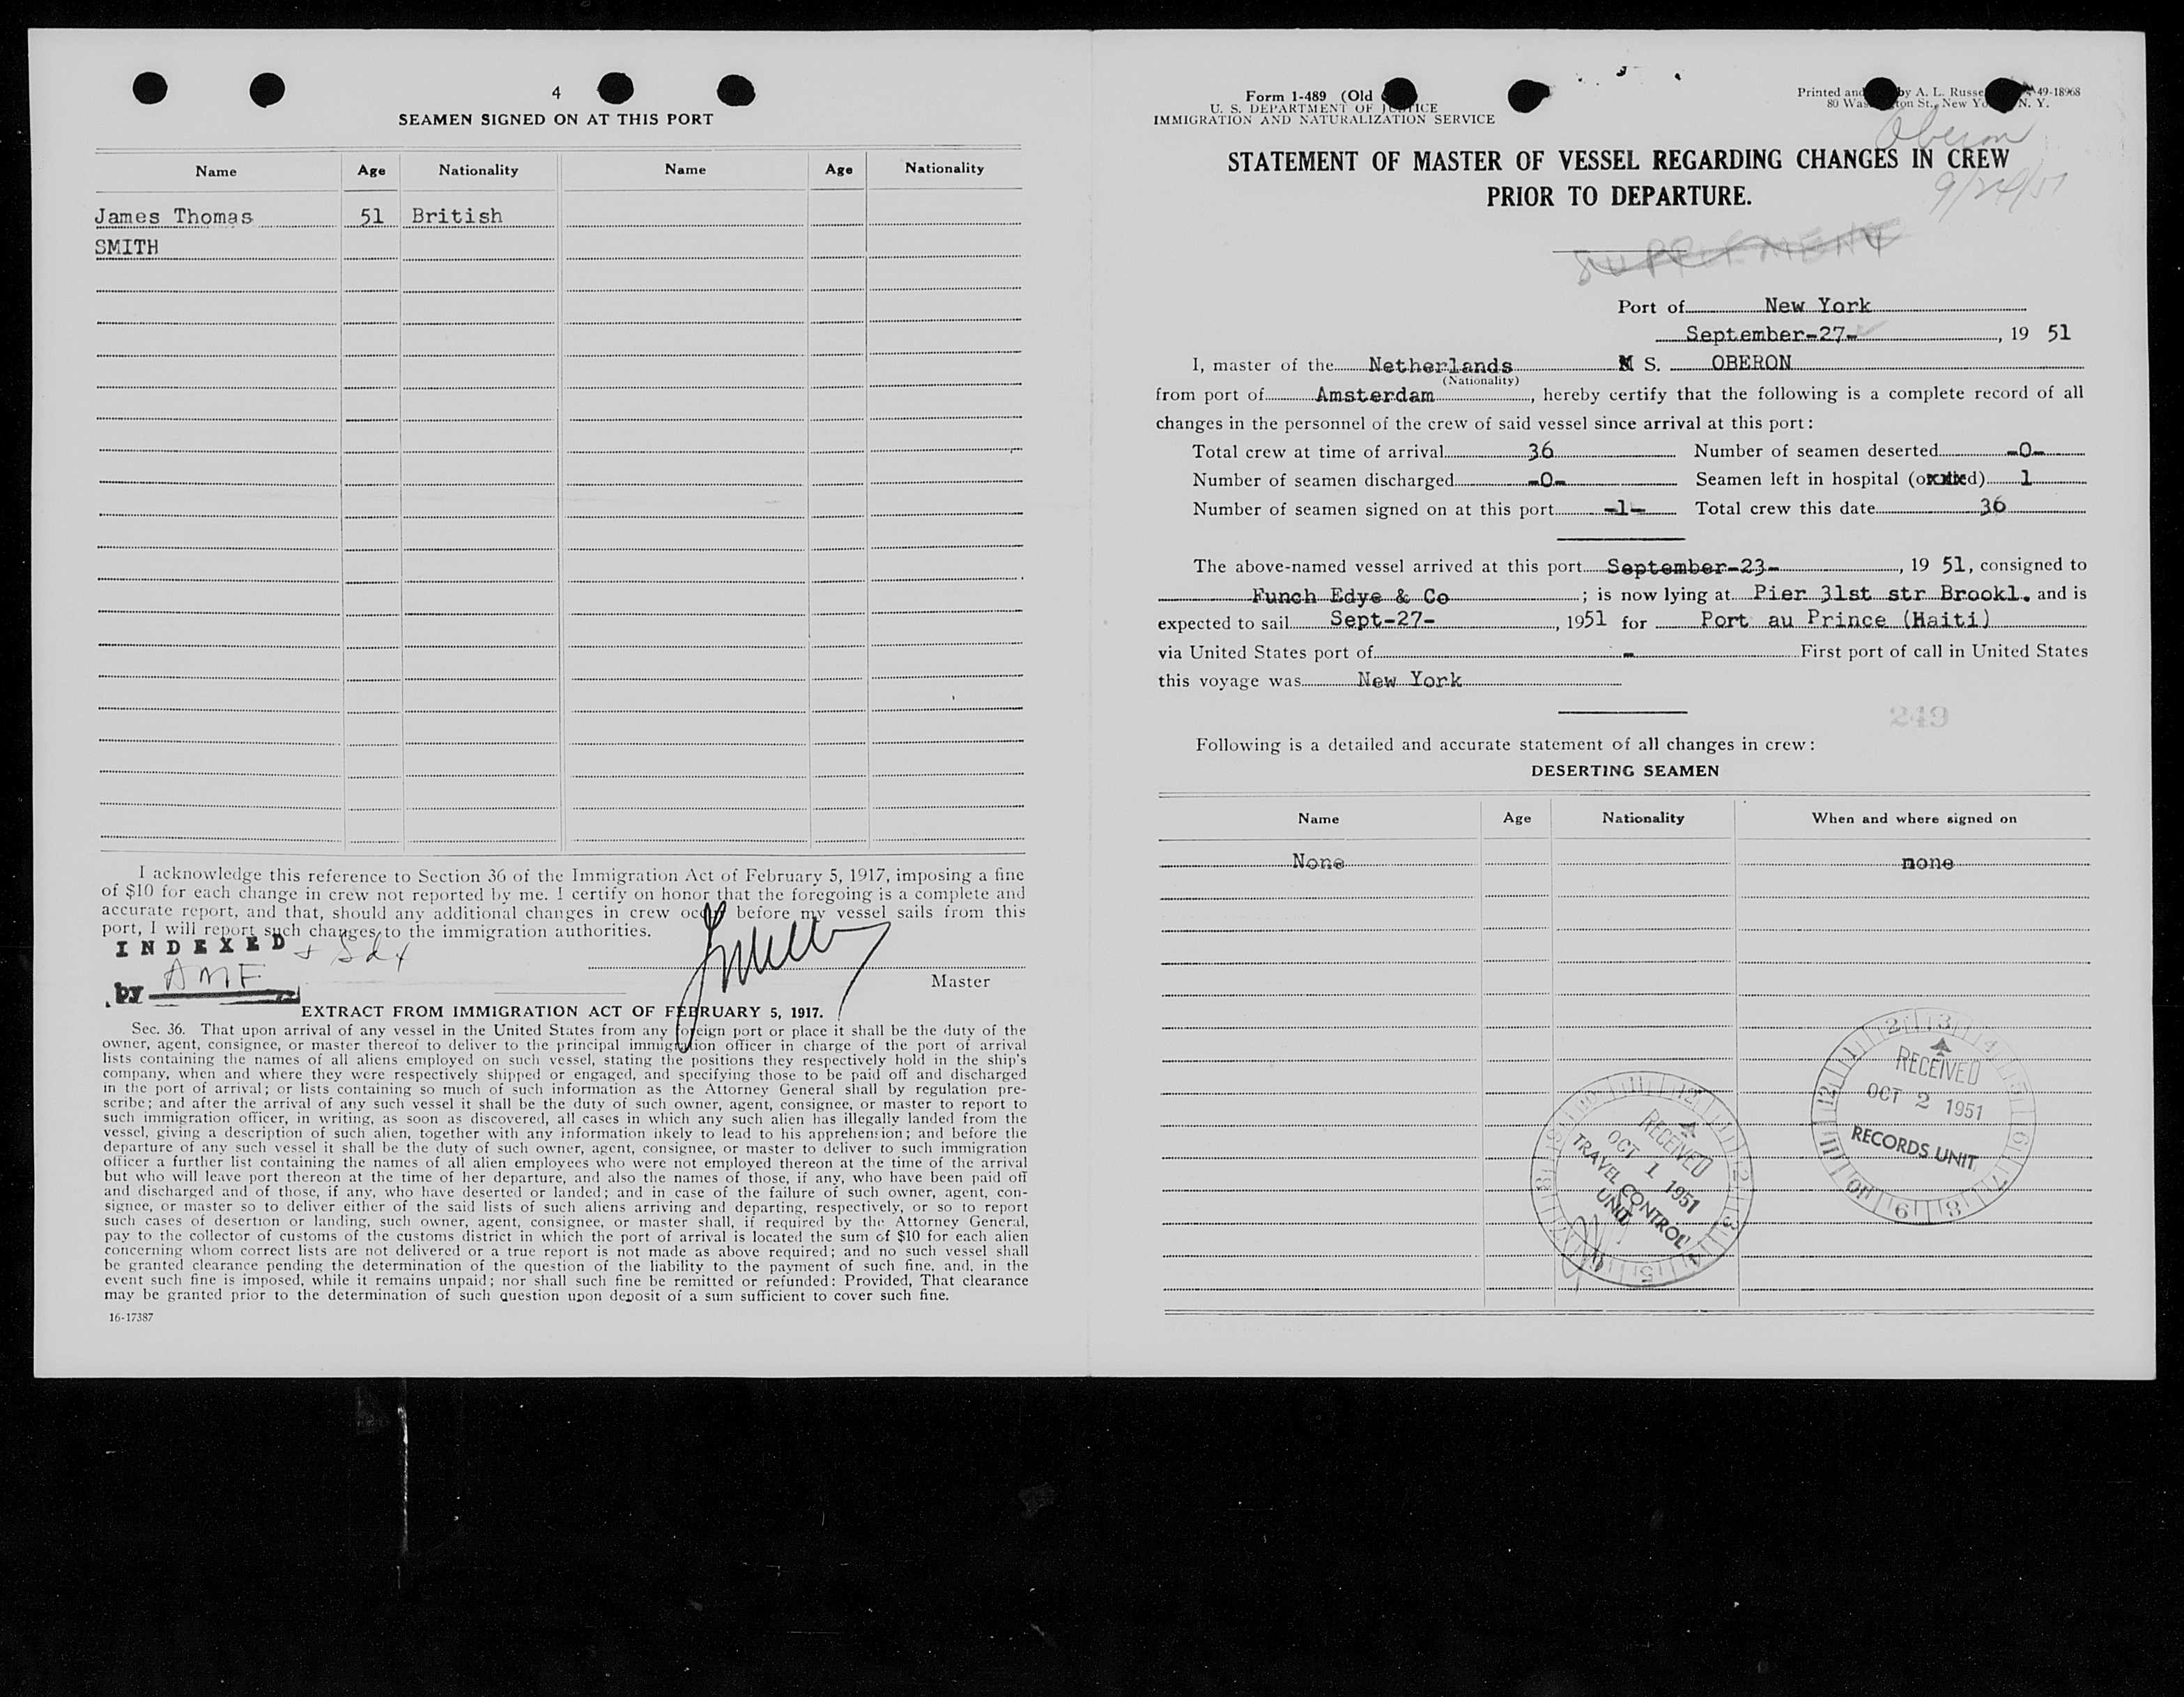 4
SEAMEN SIGNED ON AT THIS PORT
Name Age Nationality Name Age Nationality
James Thomas 51 British
SMITH
I acknowledge this reference to Section 36 of the Immigration Act of February 5, 1917, imposing a fine
of $10 for each change in crew not reported by me. I certify on honor that the foregoing is a complete and
accurate report, and that, should any additional changes in crew occur before my vessel sails from this
port, I will report such changes to the immigration authorities.
INDEXED
by AMF
Master
EXTRACT FROM IMMIGRATION ACT OF FEBRUARY 5, 1917.
Sec. 36. That upon arrival of any vessel in the United States from any foreign port or place it shall be the duty of the
owner, agent, consignee, or master thereof to deliver to the principal immigration officer in charge of the port of arrival
lists containing the names of all aliens employed on such vessel, stating the positions they respectively hold in the ship's
company, when and where they were respectively shipped or engaged, and specifying those to be paid off and discharged
in the port of arrival; or lists containing so much of such information as the Attorney General shall by regulation pre-
scribe; and after the arrival of any such vessel it shall be the duty of such owner, agent, consignee, or master to report to
such immigration officer, in writing, as soon as discovered, all cases in which any such alien has illegally landed from the
vessel, giving a description of such alien, together with any information likely to lead to his apprehension; and before the
departure of any such vessel it shall be the duty of such owner, agent, consignee, or master to deliver to such immigration
officer a further list containing the names of all alien employees who were not employed thereon at the time of the arrival
but who will leave port thereon at the time of her departure, and also the names of those, if any, who have been paid off
and discharged and of those, if any, who have deserted or landed; and in case of the failure of such owner, agent, con-
signee, or master so to deliver either of the said lists of such aliens arriving and departing, respectively, or so to report
such cases of desertion or landing, such owner, agent, consignee, or master shall, if required by the Attorney General,
pay to the collector of customs of the customs district in which the port of arrival is located the sum of $10 for each alien
concerning whom correct lists are not delivered or a true report is not made as above required; and no such vessel shall
be granted clearance pending the determination of the question of the liability to the payment of such fine, and, in the
event such fine is imposed, while it remains unpaid; nor shall such fine be remitted or refunded: Provided, That clearance
may be granted prior to the determination of such question upon deposit of a sum sufficient to cover such fine.
16-17387
Form 1-489 (Old
U. S. DEPARTMENT OF JUSTICE
IMMIGRATION AND NATURALIZATION SERVICE
Printed and by A. L. Russe 49-18968
80 Washington St., New York N. Y.
Oberon
9/24/51
STATEMENT OF MASTER OF VESSEL REGARDING CHANGES IN CREW
PRIOR TO DEPARTURE.
SUPPLEMENT
Port of New York
September-27- , 19 51
I, master of the Netherlands M S. OBERON
(Nationality)
from port of Amsterdam , hereby certify that the following is a complete record of all
changes in the personnel of the crew of said vessel since arrival at this port:
Total crew at time of arrival 36 Number of seamen deserted -0-
Number of seamen discharged -0- Seamen left in hospital 1
Number of seamen signed on at this port -1- Total crew this date 36
The above-named vessel arrived at this port September-23- , 19 51, consigned to
Funch Edye & Co ; is now lying at Pier 31st str Brookl. and is
expected to sail Sept-27- , 1951 for Port au Prince (Haiti)
via United States port of - First port of call in United States
this voyage was New York
249
Following is a detailed and accurate statement of all changes in crew:
DESERTING SEAMEN
Name Age Nationality When and where signed on
None none
RECEIVED
OCT 2 1951
RECORDS UNIT
RECEIVED
OCT 1 1951
TRAVEL CONTROL
UNIT